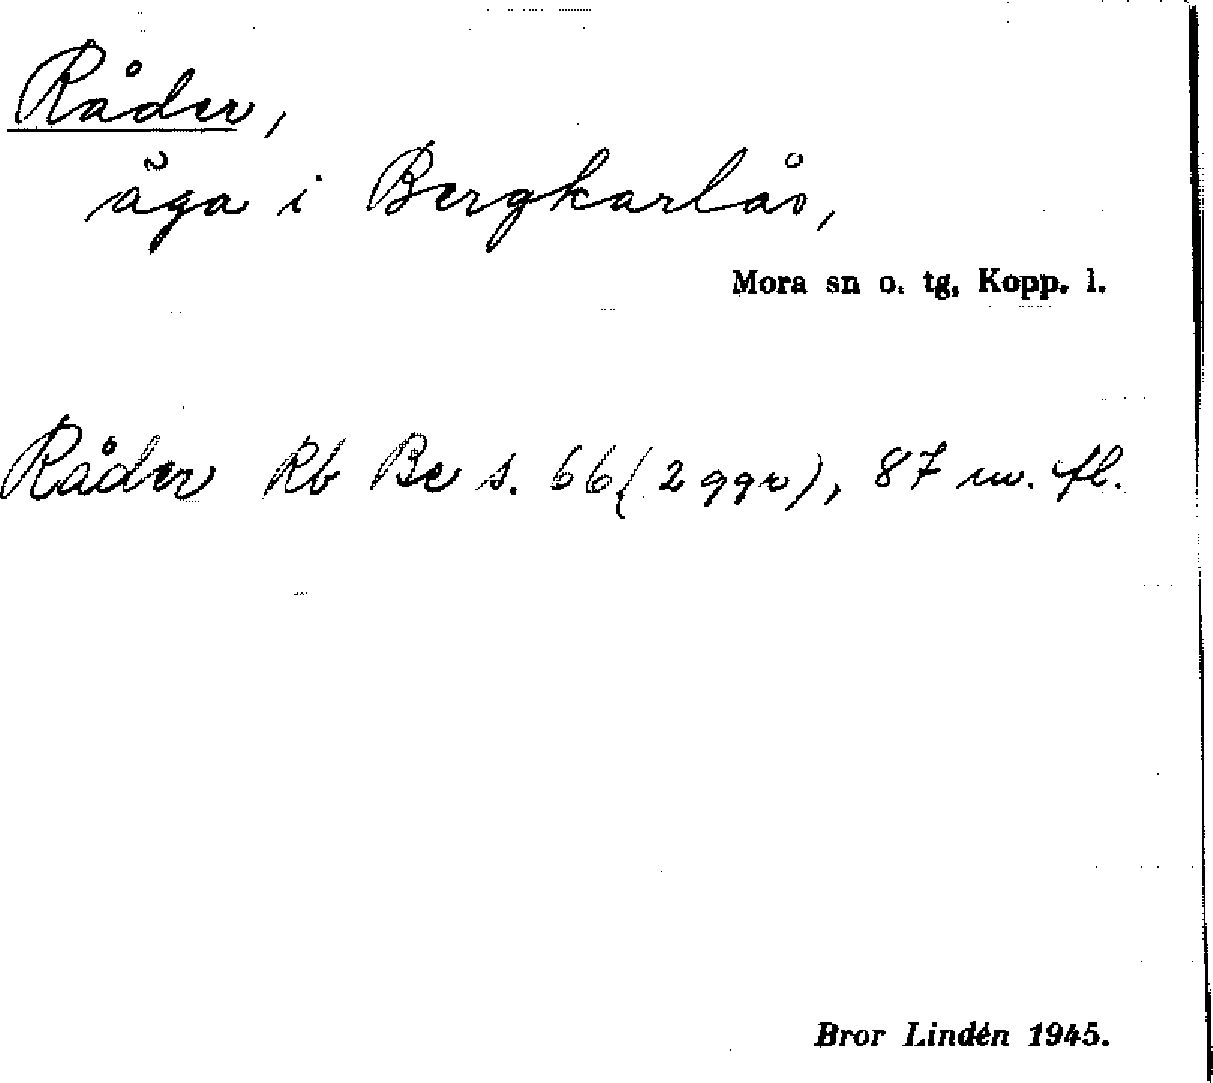 Råder,
äga i Bergkarlås,
Mora sn o. tg, Kopp. l.
Råder Rb Be s. 66 (2 ggr), 87 m. fl.
Bror Lindén 1945.